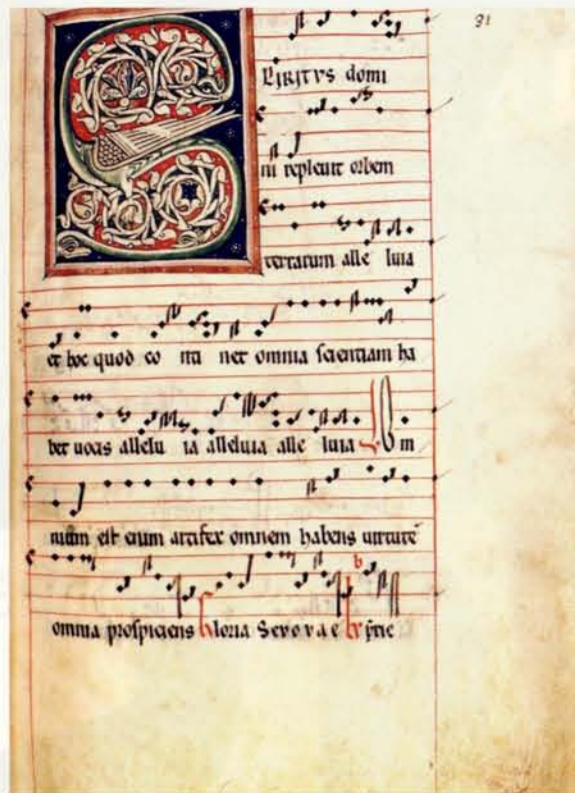 31
SPIRITVS domi
ni repleuit orbem
terrarum alle luia
et hoc quod co nti net omnia scientiam ha
bet uocis allelu ia alleluia alle luia V Om
nium est enim artifex omnem habens uirtutē
omnia prospiciens Gloria Seuouae